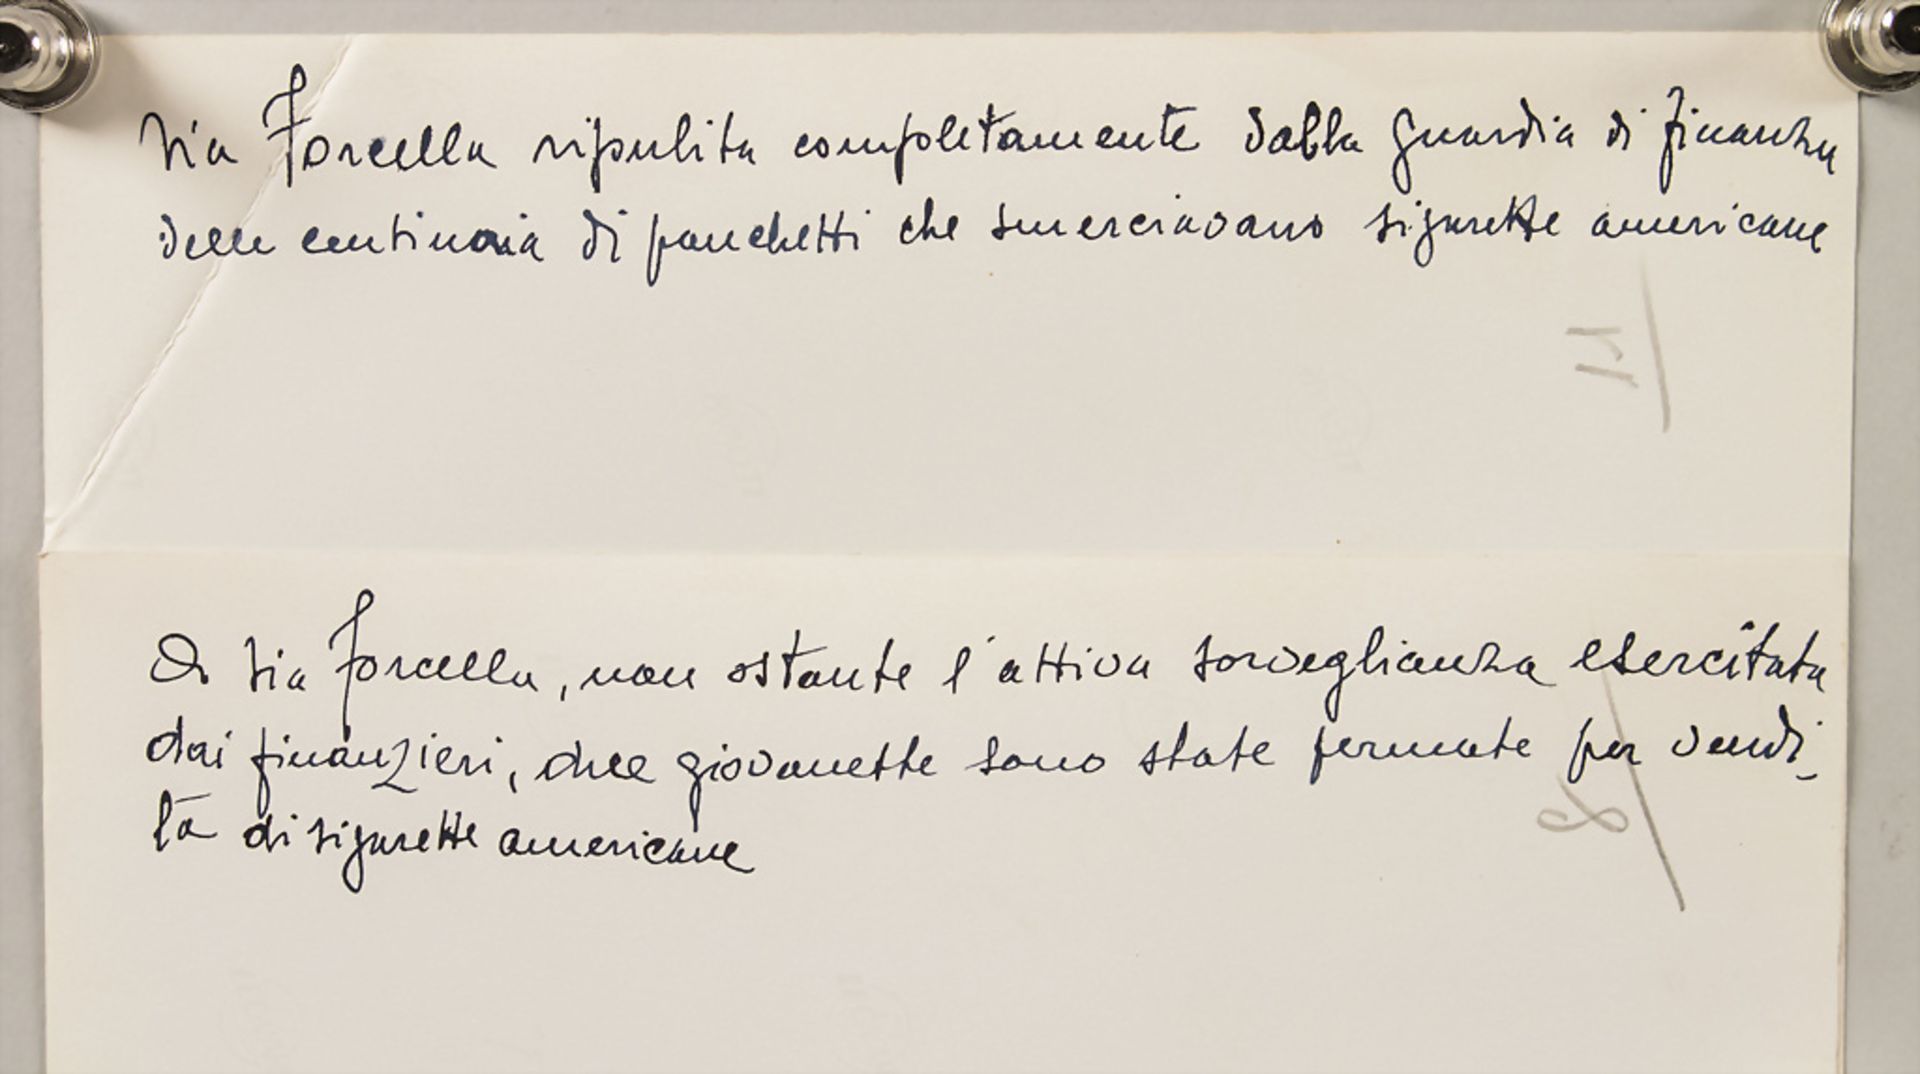 Via Forcella ripulita completamente dalla Guardia di finanza
delle centinaia di panchetti che smerciavano sigarette americane
A Via Forcella, non ostante l'attiva sorveglianza esercitata
dai finanzieri, due giovanette sono state fermate per vendi_
ta di sigarette americane